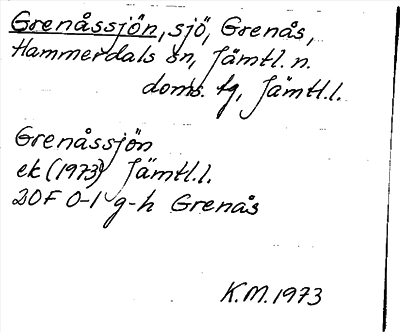 Grenåssjön, sjö, Grenås,
Hammerdals sn, Jämtl. n.
doms. fg, Jämtl.l.
Grenåssjön
ek (1973) Jämtl.l.
20F 0-1 g-h Grenås
K.M. 1973